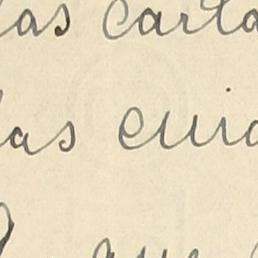 las carta
las cuid
que